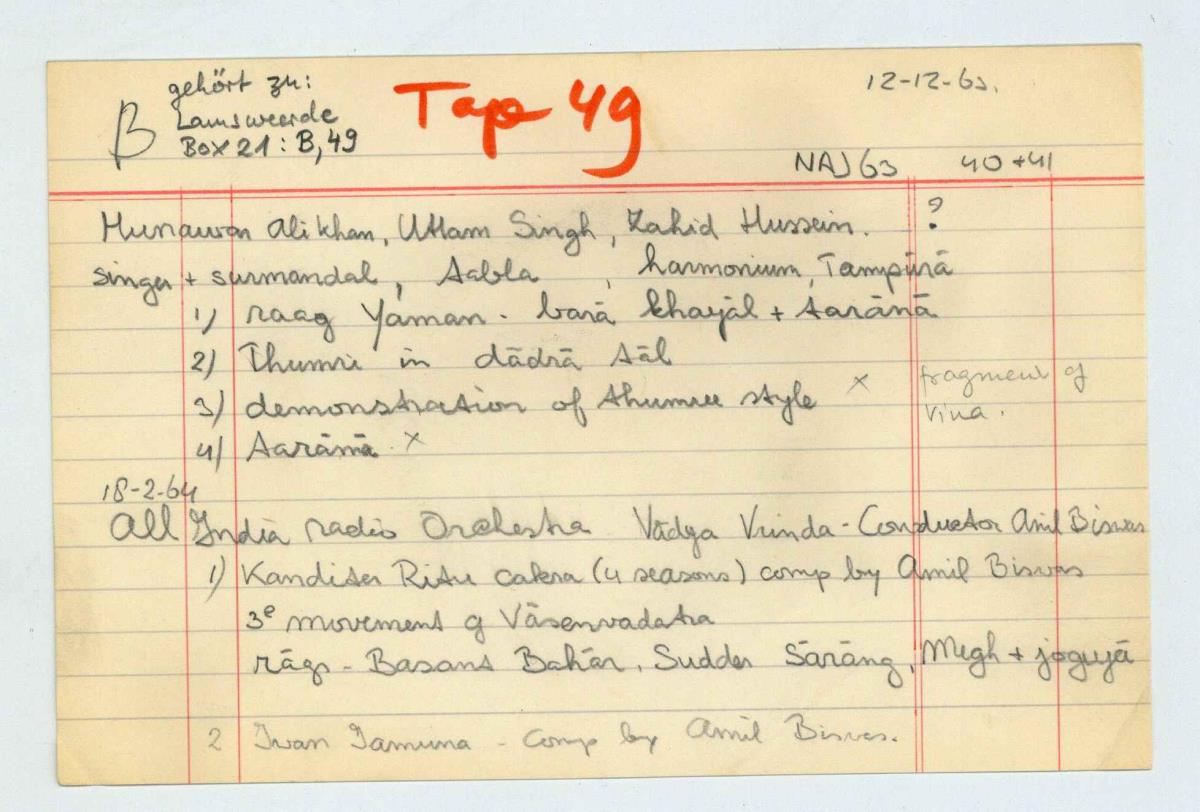 B gehört zu:
Lamsweerde
Box 21: B, 49
Tape 49
12-12-63.
NAJ 63 40 + 41
Munawar Ali khan, Uttam Singh, Zahid Hussein. ?
singer + surmandal, tabla, harmonium, Tampūrā
1) raag Yáman - barā khayāl + tarānā
2) Thumri in dādrā tāl
3) demonstration of thumree style x fragment of
vina.
4) tarānā x
18-2-64
All India radio Orchestra Vādya Vrinda - Conductor Anil Biswas
1) Ritu cakra (4 seasons) comp by Anil Biswas
3e movement of
rāgs - Basant Bahār, Sārāng, Megh + jogiyā
2 Jamuna - comp by Anil Biswas.